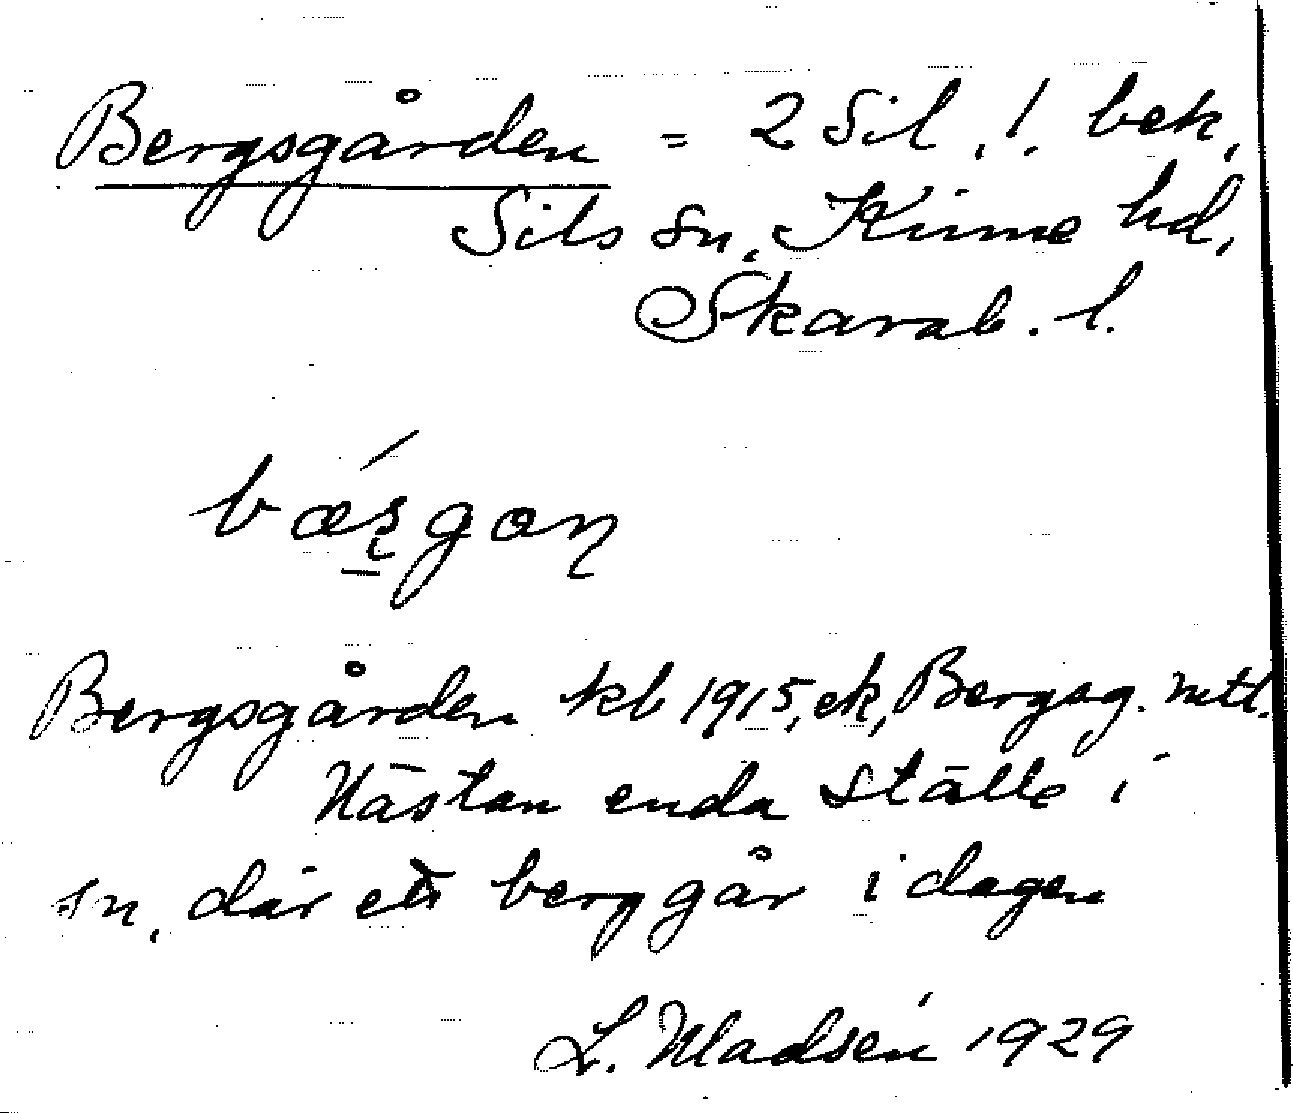 Bergsgården = 2 Sil, 1. bek,
Sils sn, Kinne hd,
Skarab. l.
bǽrgon
Bergsgården kb 1915, ek, Bergsg. mtl.
Nästan enda ställe i
sn, där ett berg går i dagen
L. Madsén 1929